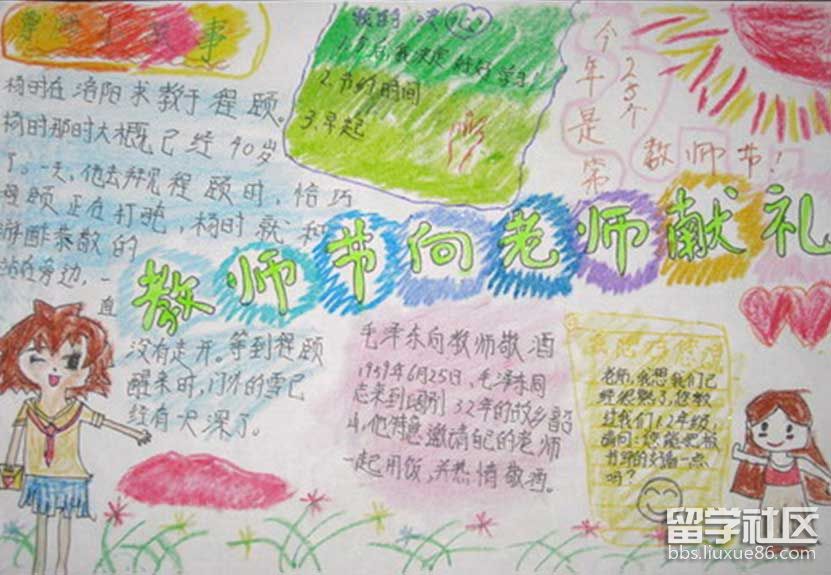 尊师小故事
杨时在洛阳求教于程颐。
杨时那时大概已经40岁
了。一天,他去拜见程颐时,恰巧
程颐正在打盹,杨时就和
游酢恭敬的
站在旁边,一
直
没有走开。等到程颐
醒来时,门外的雪已
经有一尺深了。
1.今后,我决定好好学习
2.节约时间
3.早起
今年是第
25个
教师节!
教师节向老师献礼
毛泽东向教师敬酒
1959年6月25日,毛泽东同
志来到阔别32年的故乡韶
山,他特意邀请自己的老师
一起用饭,并热情敬酒。
老师,我想我们已
经很熟了,您教
过我们1.2年级,
请问:您能把板
书写的好看一点
吗?
留学社区
bbs.liuxue86.com